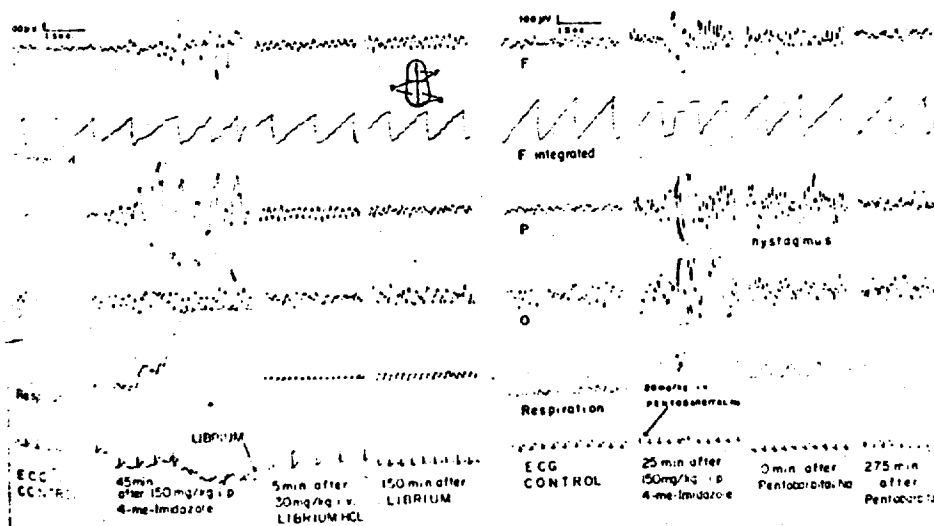 1 sec
100 μV
1 sec
F
F integrated
P
nystagmus
O
Resp
Respiration
PENTOBARBITAL Na
LIBRIUM
ECG
CONTROL
45 min
after 150 mg/kg i.p
4-me-Imidazole
5 min after
30 mg/kg i.v.
LIBRIUM HCL
150 min after
LIBRIUM
ECG
CONTROL
25 min after
150 mg/kg i.p
4-me-Imidazole
min after
Pentobarbital Na
275 min
after